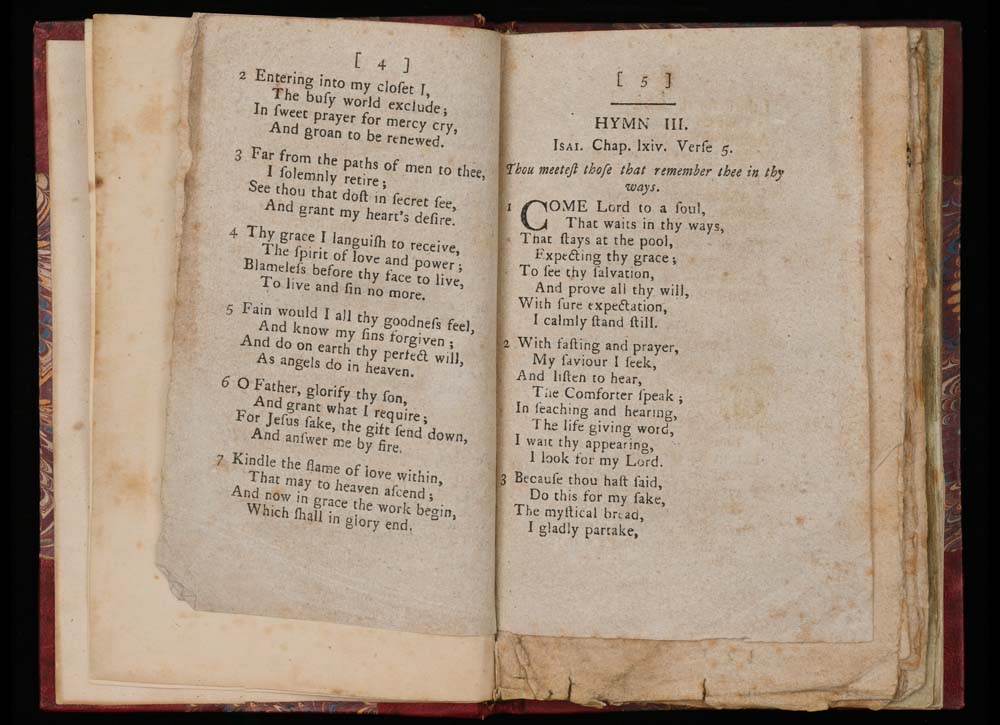 [ 4 ]
2 Entering into my cloſet I,
The buſy world exclude;
In ſweet prayer for mercy cry,
And groan to be renewed.
3 Far from the paths of men to thee,
I ſolemnly retire;
See thou that doſt in ſecret ſee,
And grant my heart's deſire.
4 Thy grace I languiſh to receive,
The ſpirit of love and power;
Blameleſs before thy face to live,
To live and ſin no more.
5 Fain would I all thy goodneſs feel,
And know my ſins forgiven;
And do on earth thy perfect will,
As angels do in heaven.
6 O Father, glorify thy ſon,
And grant what I require;
For Jeſus ſake, the gift ſend down,
And anſwer me by fire.
7 Kindle the flame of love within,
That may to heaven aſcend;
And now in grace the work begin,
Which ſhall in glory end.
[ 5 ]
HYMN III.
ISAI. Chap. lxiv. Verſe 5.
Thou meeteſt thoſe that remember thee in thy
ways.
1 COME Lord to a ſoul,
That waits in thy ways,
That ſtays at the pool,
Expecting thy grace;
To ſee thy ſalvation,
And prove all thy will,
With ſure expectation,
I calmly ſtand ſtill.
2 With faſting and prayer,
My ſaviour I ſeek,
And liſten to hear,
The Comforter ſpeak;
In ſeaching and hearing,
The life giving word,
I wait thy appearing,
I look for my Lord.
3 Becauſe thou haſt ſaid,
Do this for my ſake,
The myſtical bread,
I gladly partake,